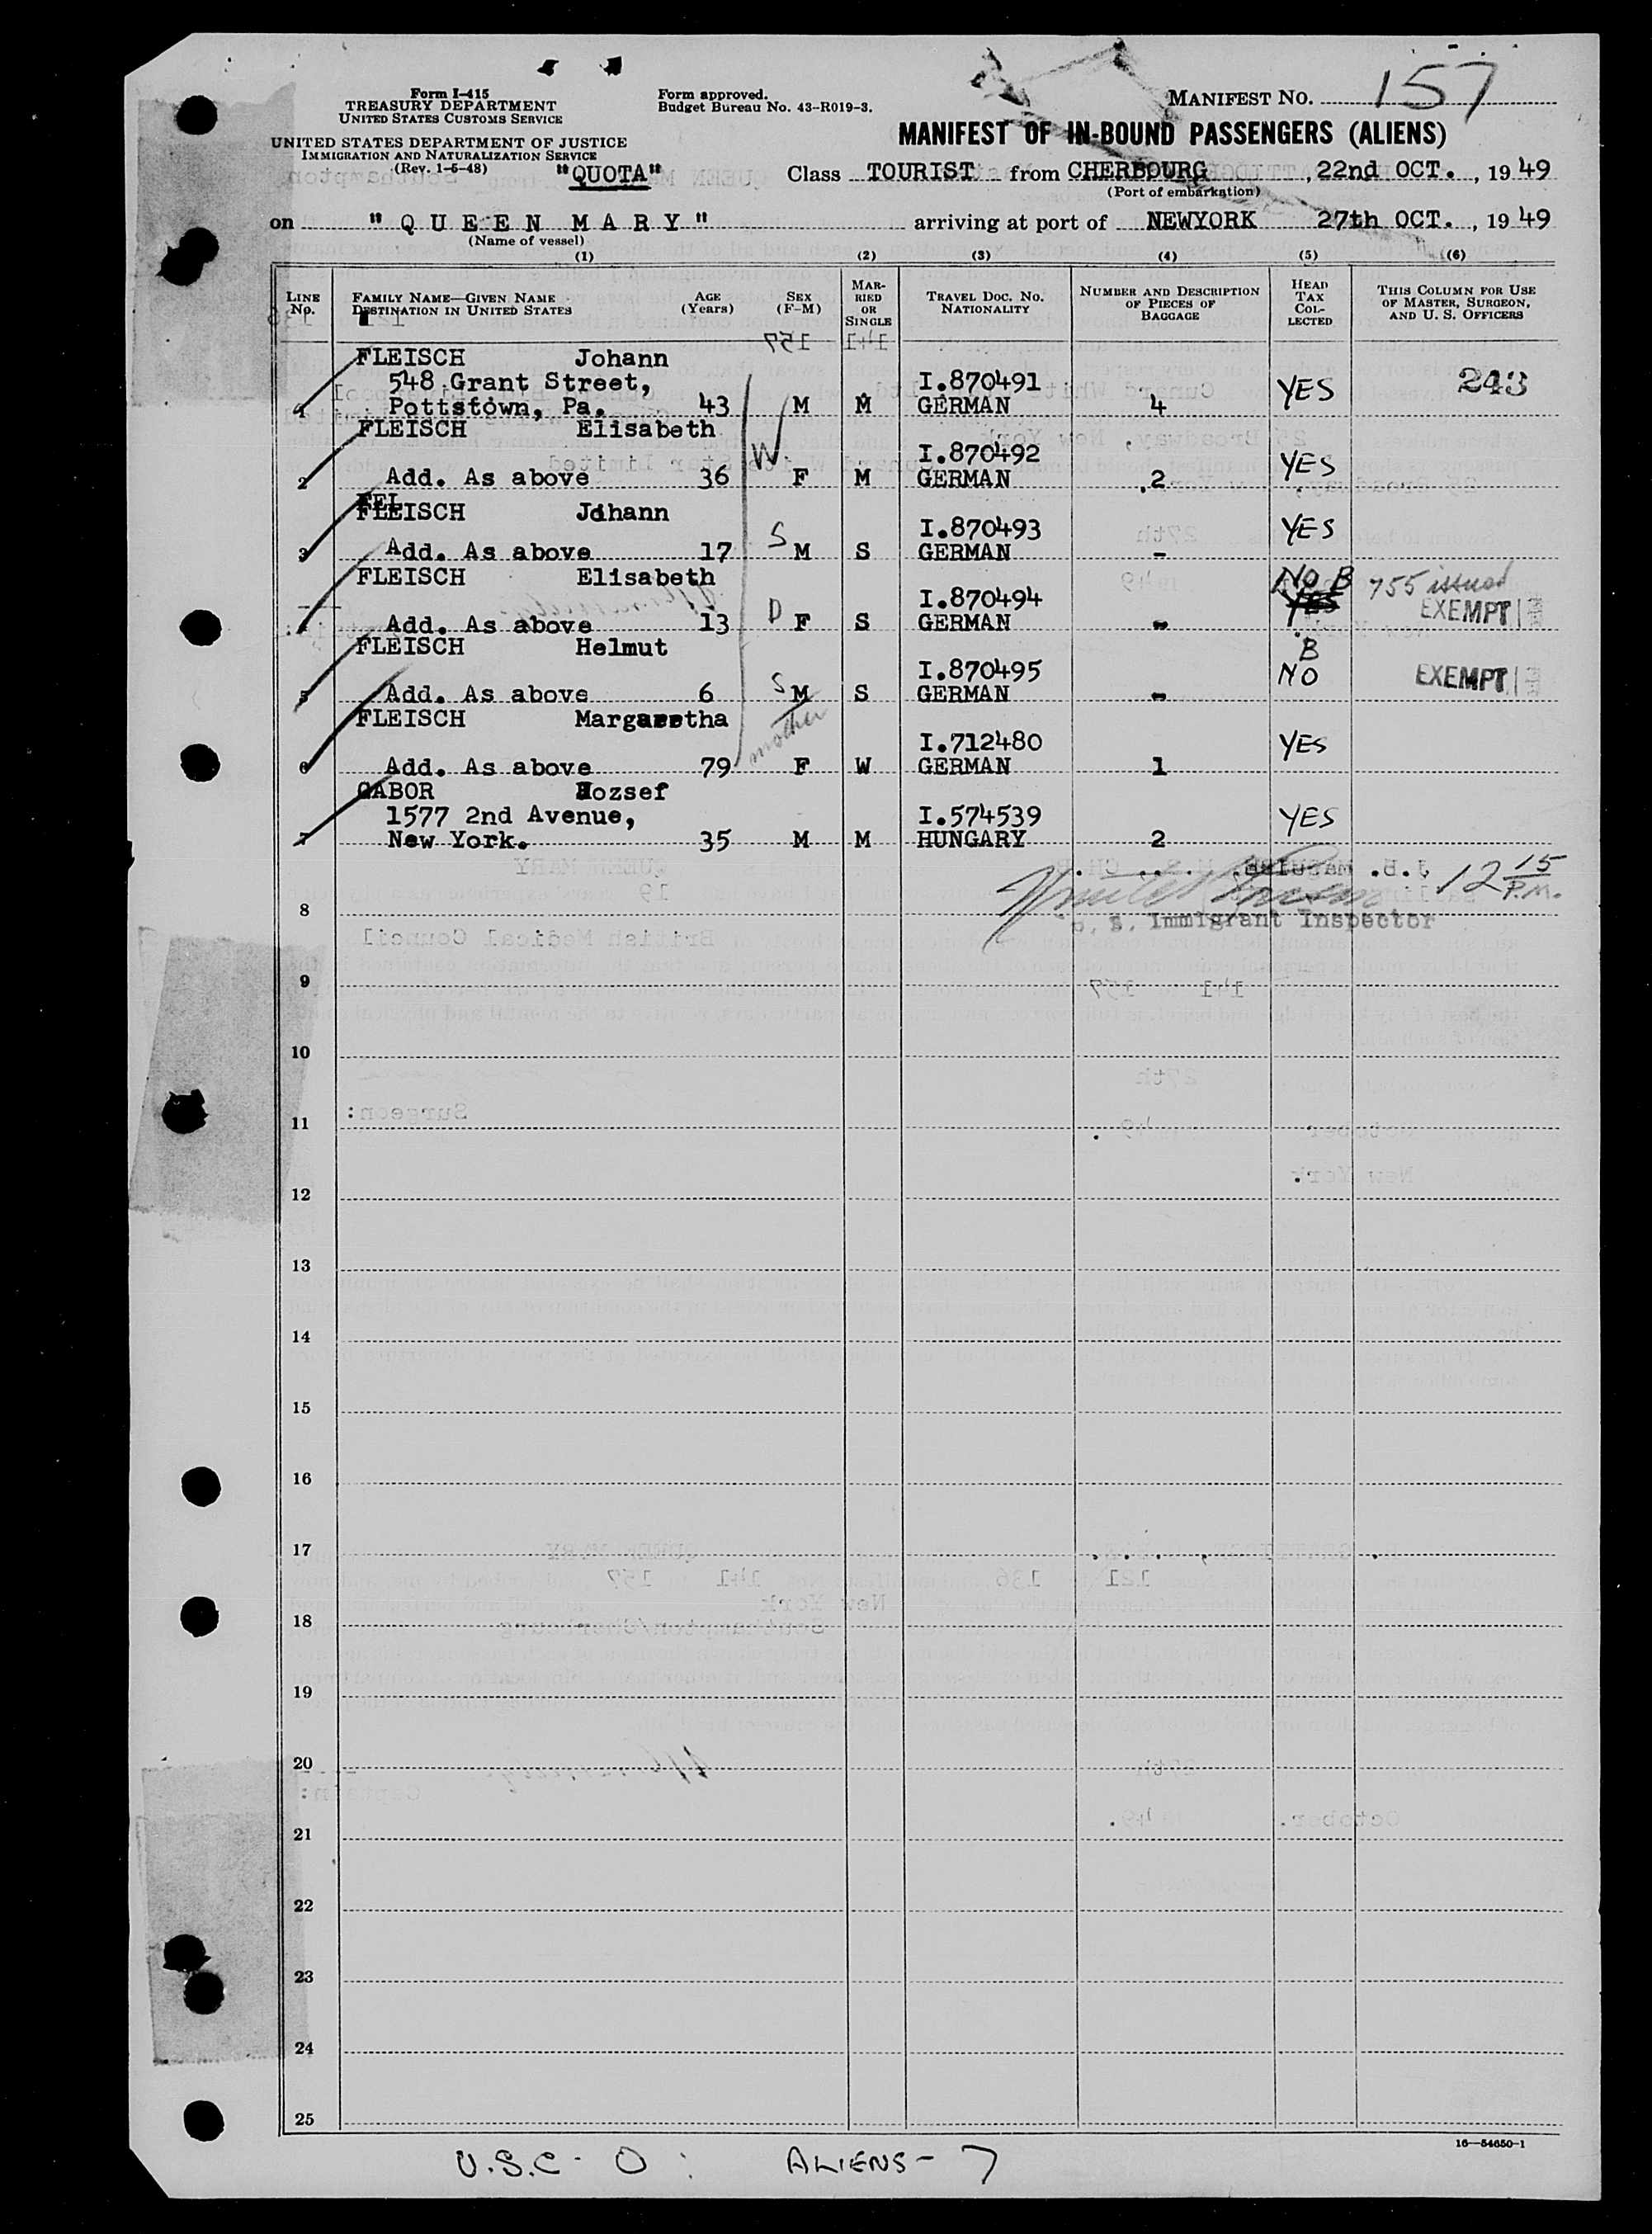 Form I-415
TREASURY DEPARTMENT
UNITED STATES CUSTOMS SERVICE
UNITED STATES DEPARTMENT OF JUSTICE
IMMIGRATION AND NATURALIZATION SERVICE
(Rev. 1-5-48)
"QUOTA"
Form approved.
Budget Bureau No. 43-R019-3.
MANIFEST NO. 157
MANIFEST OF IN-BOUND PASSENGERS (ALIENS)
Class TOURIST from CHERBOURG, 22nd OCT., 1949
(Port of embarkation)
on "QUEEN MARY" arriving at port of NEWYORK 27th OCT., 1949
(Name of vessel)
(1) (2) (3) (4) (5) (6)
LINE No. FAMILY NAME—GIVEN NAME DESTINATION IN UNITED STATES AGE (Years) SEX (F-M) MARRIED OR SINGLE TRAVEL DOC. NO. NATIONALITY NUMBER AND DESCRIPTION OF PIECES OF BAGGAGE HEAD TAX COLLECTED THIS COLUMN FOR USE OF MASTER, SURGEON, AND U. S. OFFICERS
FLEISCH Johann
548 Grant Street, I.870491 YES 243
1 Pottstown, Pa. 43 M M GERMAN 4
FLEISCH Elisabeth
W. I.870492 YES
2 Add. As above 36 F M GERMAN 2
FLEISCH Johann
S I.870493 YES
3 Add. As above 17 M S GERMAN -
FLEISCH Elisabeth NO B 755 issued
I.870494 YES EXEMPT
4 Add. As above 13 D F S GERMAN -
FLEISCH Helmut B
I.870495 NO EXEMPT
5 Add. As above 6 S M S GERMAN -
FLEISCH Margaretha
mother I.712480 YES
6 Add. As above 79 F W GERMAN 1
GABOR Jozsef
1577 2nd Avenue, I.574539 YES
7 New York. 35 M M HUNGARY 2
12 15 P.M.
8 U. S. Immigrant Inspector
9
10
11
12
13
14
15
16
17
18
19
20
21
22
23
24
25
16—54650-1
U.S.C - 0 : ALIENS - 7